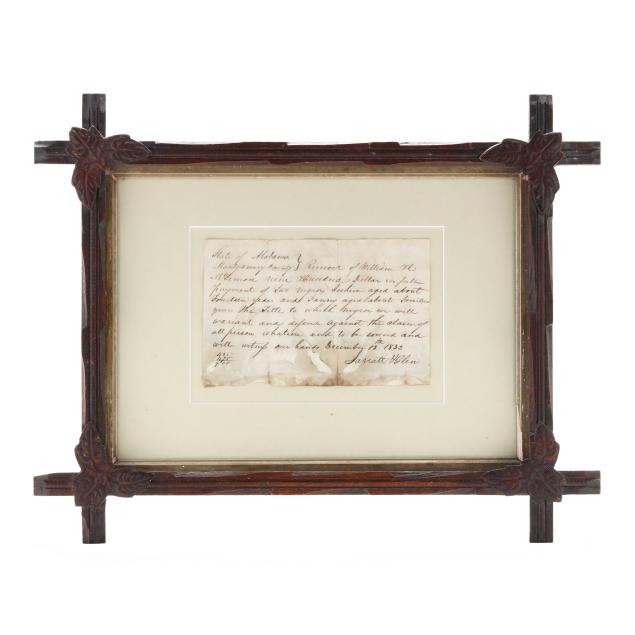 State of Alabama }
Montgomery County } Received of William H
McLemore nine Hundred Dollar in full
payment of two negros aged about
fourteen years and Fanny aged about fourteen
years the title to which negros we will
warrant and defend against the claim of
all person whatsoever and to be sound and
well witness our hands December 18th 1832
Jarratt &